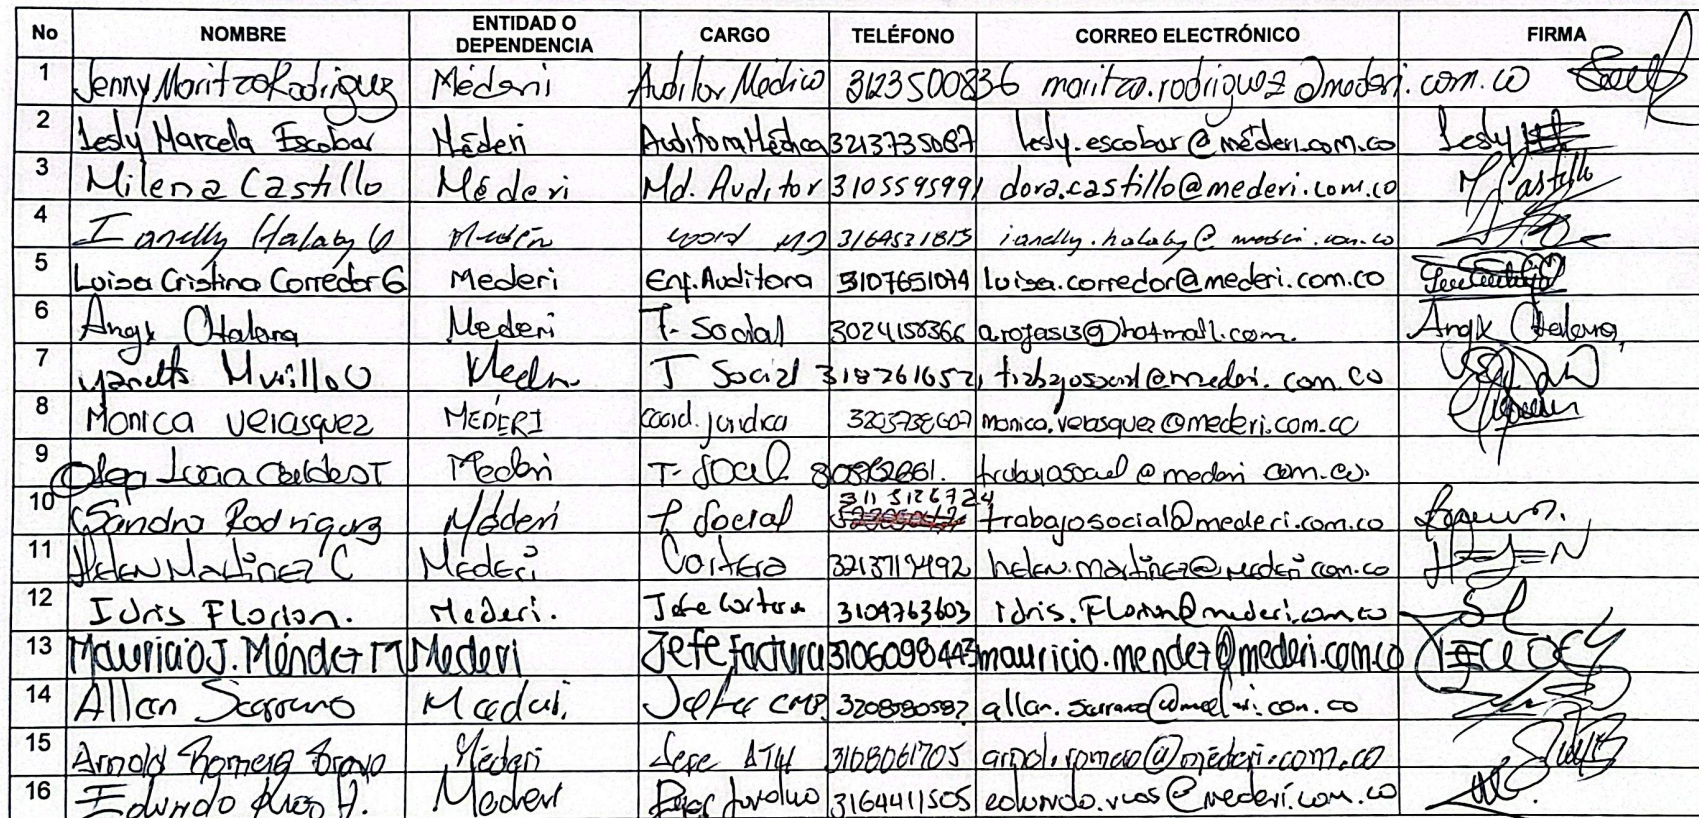 No NOMBRE ENTIDAD O DEPENDENCIA CARGO TELÉFONO CORREO ELECTRÓNICO FIRMA
1 Jenny Maritza Rodriguez Méderi Auditor Médico 3123500836 maritza.rodriguez@mederi.com.co
2 Lesly Marcela Escobar Méderi Auditora Médica 3213735087 lesly.escobar@méderi.com.co Lesly
3 Milena Castillo Méderi Md. Auditor 3105595991 dora.castillo@mederi.com.co M Castillo
4 Ianelly Halaby G Mederi coord MD 3164531815 ianelly.halaby@mederi.com.co
5 Luisa Cristina Corredor G Mederi Enf. Auditora 3107651074 luisa.corredor@mederi.com.co
6 Angx Otalora Mederi T. Social 3024158366 a.rojas13@hotmail.com. Angx Otalora
7 Murillo Mederi T Social 318761652 trabajosocial@mederi.com.co
8 Monica Velasquez MEDERI coord. juridica monica.velasquez@mederi.com.co
9 Olga Lucia Mederi T. Social trabajosocial@mederi com.co.
10 Sandra Rodriguez Méderi T Social 3115126724 trabajosocial@mederi.com.co
11 Helen Martinez C Méderi Cartera 3213717492 helen.martinez@mederi.com.co
12 Idris Florian. Mederi. Jefe Cartera 3104763603 idris.Florian@mederi.com.co
13 Mauricio J. Méndez M Mederi Jefe factura 3106098443 mauricio.mendez@mederi.com.co
14 Allan Serrano Mederi. Jefe 3208580587 allan.serrano@mederi.com.co
15 Arnold Romero Bravo Méderi Jefe 3168061705 arnol.romero@méderi.com.co
16 Eduardo Mederi 3164411505 @mederi.com.co